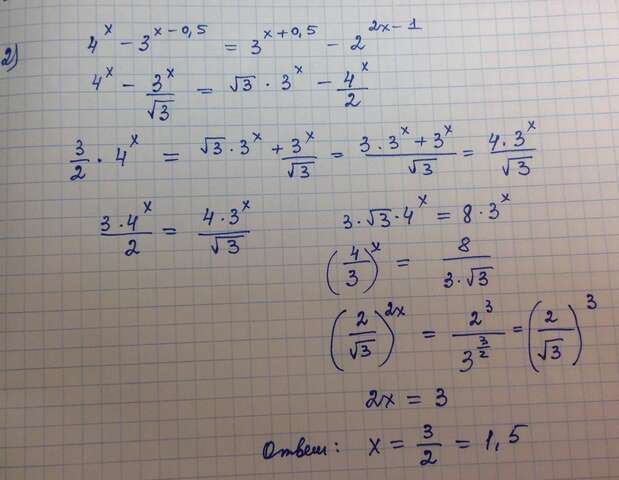 2) 4^x − 3^(x−0,5) = 3^(x+0,5) − 2^(2x−1)
4^x − 3^x/√3 = √3 · 3^x − 4^x/2
3/2 · 4^x = √3 · 3^x + 3^x/√3 = (3 · 3^x + 3^x)/√3 = (4 · 3^x)/√3
(3 · 4^x)/2 = (4 · 3^x)/√3
3 · √3 · 4^x = 8 · 3^x
(4/3)^x = 8/(3 · √3)
(2/√3)^(2x) = 2^3/3^(3/2) = (2/√3)^3
2x = 3
Ответ: x = 3/2 = 1,5